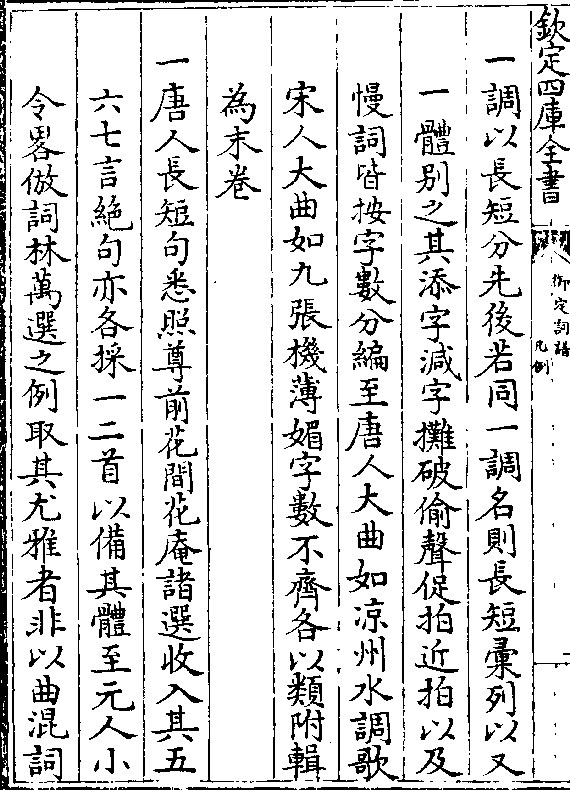 欽定四庫全書
御定詞譜
凡例
一調以長短分先後若同一調名則長短彚列以又
一體別之其添字減字攤破偷聲促拍近拍以及
慢詞皆按字數分編至唐人大曲如凉州水調歌
宋人大曲如九張機薄媚字數不齊各以類附輯
為末卷
一唐人長短句悉照尊前花間花庵諸選收入其五
六七言絶句亦各採一二首以備其體至元人小
令畧倣詞林萬選之例取其尤雅者非以曲混詞